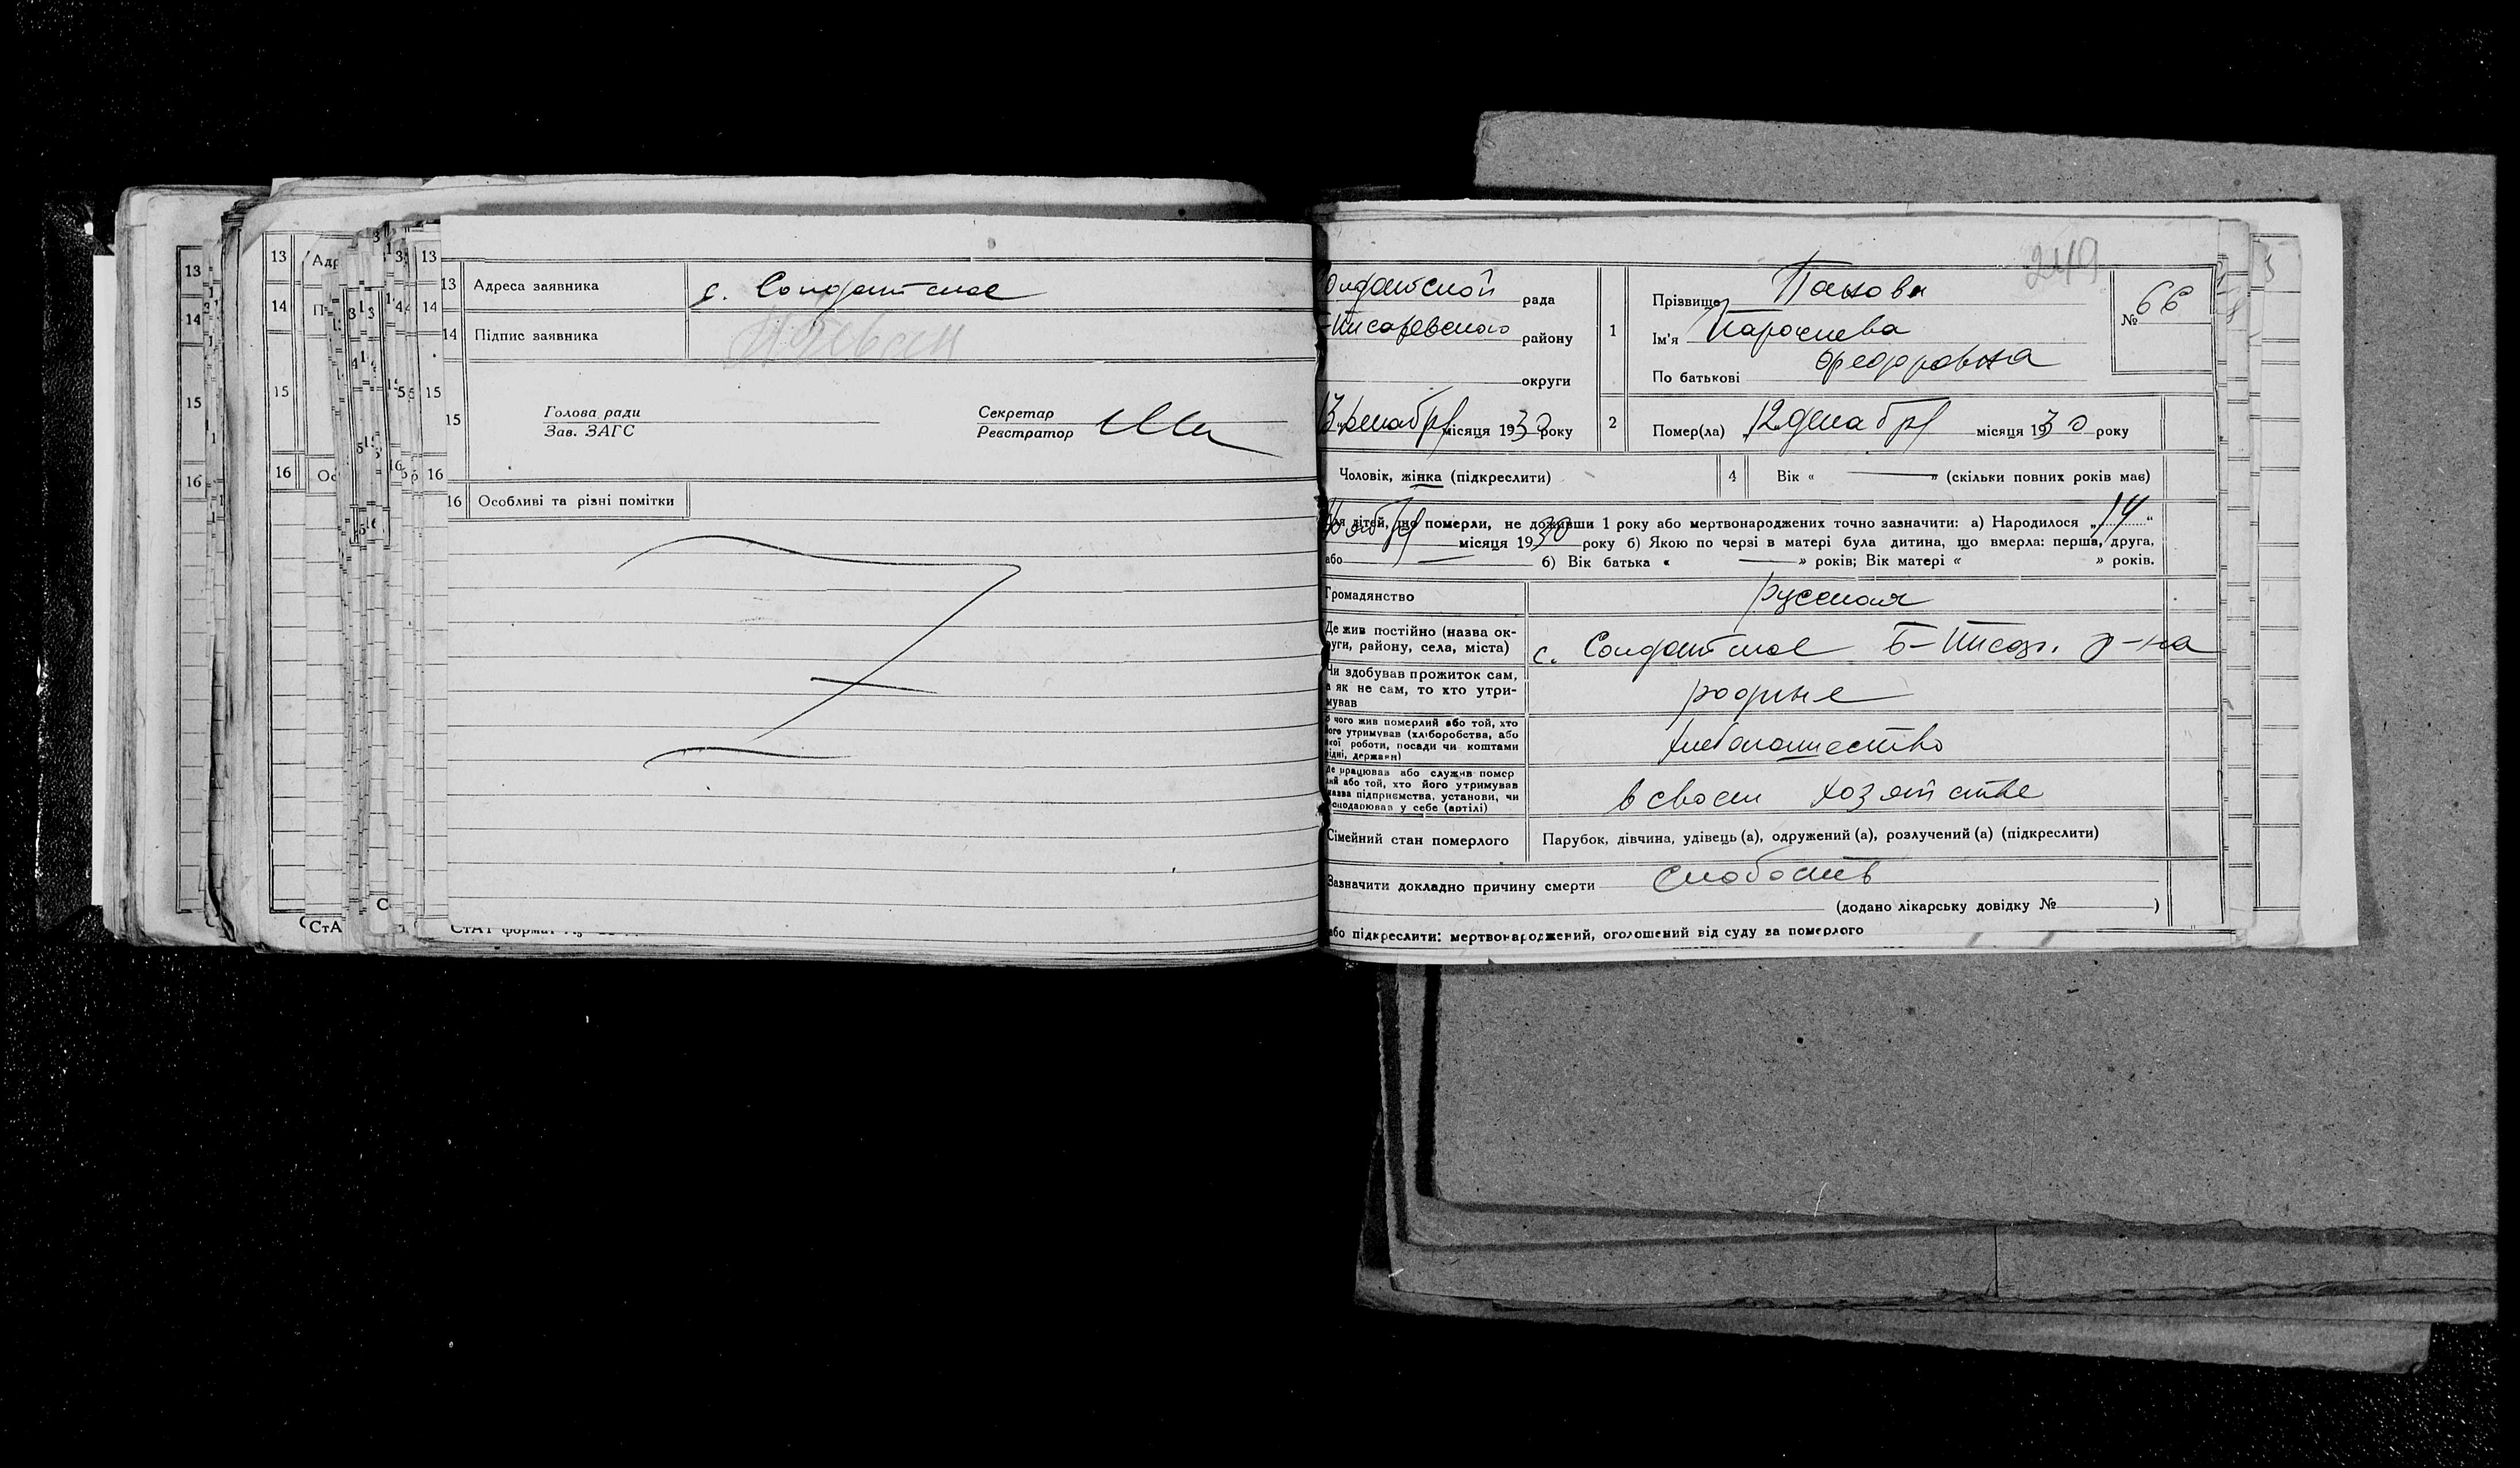 13 Адреса заявника с. Солдатское
14 Підпис заявника
15 Голова ради Секретар
Зав. ЗАГС Реєстратор
16 Особливі та різні помітки
249
Солдатской рада
-Писаревского району
округи
13 декабря місяця 1930 року
1 Прізвище Панова
Ім'я Парасковия
По батькові Федоровна
№ 66
2 Помер(ла) 12 декабря місяця 1930 року
Чоловік, жінка (підкреслити) 4 Вік « — » (скільки повних років має)
Для дітей, що померли, не доживши 1 року або мертвонароджених точно зазначити: а) Народилося „14“
ноября місяця 1930 року б) Якою по черзі в матері була дитина, що вмерла: перша, друга,
або — б) Вік батька « — » років; Вік матері « » років.
Громадянство русская
Де жив постійно (назва ок-
руги, району, села, міста) с. Солдатское Б-Писар. р-на
Чи здобував прожиток сам,
а як не сам, то хто утри-
мував родные
З чого жив померлий або той, хто
його утримував (хліборобства, або
якої роботи, посади чи коштами
рідні, держави) хлебопашество
Де працював або служив помер
лий або той, хто його утримував
назва підприємства, установи, чи
господарював у себе (артілі) в своем хозяйстве
Сімейний стан померлого Парубок, дівчина, удівець (а), одружений (а), розлучений (а) (підкреслити)
Зазначити докладно причину смерти слабость
(додано лікарську довідку № )
або підкреслити: мертвонароджений, оголошений від суду за померлого